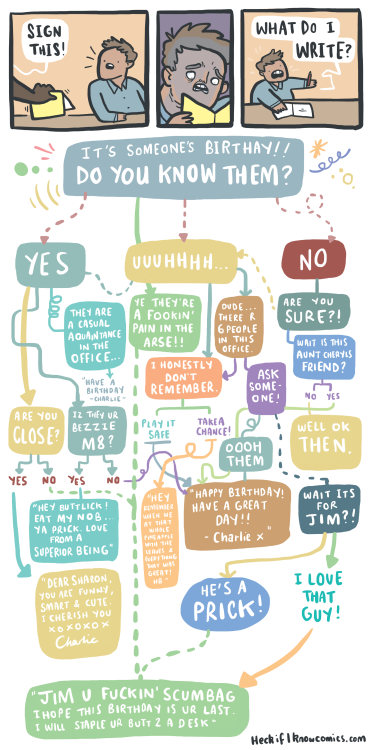 SIGN
THIS!
WHAT DO I
WRITE?
IT'S SOMEONE'S BIRTHAY!!
DO YOU KNOW THEM?
YES
UUUHHHH...
NO
THEY ARE
A CASUAL
AQUAINTANCE
IN THE
OFFICE...
"HAVE A
BIRTHDAY
-CHARLIE"
YE THEY'RE
A FOOKIN'
PAIN IN THE
ARSE!!
DUDE...
THERE R
6 PEOPLE
IN THIS
OFFICE.
ARE YOU
SURE?!
WAIT IS THIS
AUNT CHERYLS
FRIEND?
NO YES
I HONESTLY
DON'T
REMEMBER.
ASK
SOME-
ONE!
WELL OK
THEN.
ARE YOU
CLOSE?
IZ THEY UR
BEZZIE
M8?
PLAY IT
SAFE
TAKE A
CHANCE!
OOOH
THEM
YES NO YES NO
"HEY BUTTLICK!
EAT MY NOB..
YA PRICK. LOVE
FROM A
SUPERIOR BEING"
"HEY
REMEMBER
WHEN WE
AT THAT
WHOLE
PINEAPPLE
WITH THE
LEAVES &
EVERYTHING
THAT WAS
GREAT!
HB."
"HAPPY BIRTHDAY!
HAVE A GREAT
DAY!!
- Charlie x"
WAIT ITS
FOR
JIM?!
"DEAR SHARON,
YOU ARE FUNNY,
SMART & CUTE.
I CHERISH YOU
XOXOXOX
Charlie
HE'S A
PRICK!
I LOVE
THAT
GUY!
"JIM U FUCKIN' SCUMBAG
I HOPE THIS BIRTHDAY IS UR LAST.
I WILL STAPLE UR BUTT 2 A DESK"
HeckifIknowcomics.com